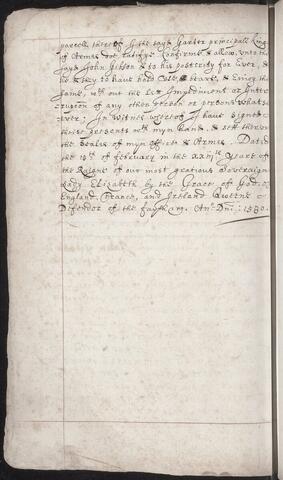 parcell thereof I the sayd Garter principall King
of Armes doe Ratifye Confirme & allow, unto the
sayd John Gibson & to his posterity for Ever, &
he & they to have hold Use & beare, & Enioy the
same wth out the Let Impediment or Inter-
ruption of any other person or persons whatso-
ever: In witnes whereof I have signed
these presents wth my hand, & sett thereto
the Seale of myn office & Armes. Dated
the 19th of february in the xxiith yeare of
the Raigne of our most gratious Soveraign
Lady Elizabeth by the Grace of God, of
England, ffrance, and Ireland Queene &
Defendor of the fayth, etc. Ano. Dni: 1580.